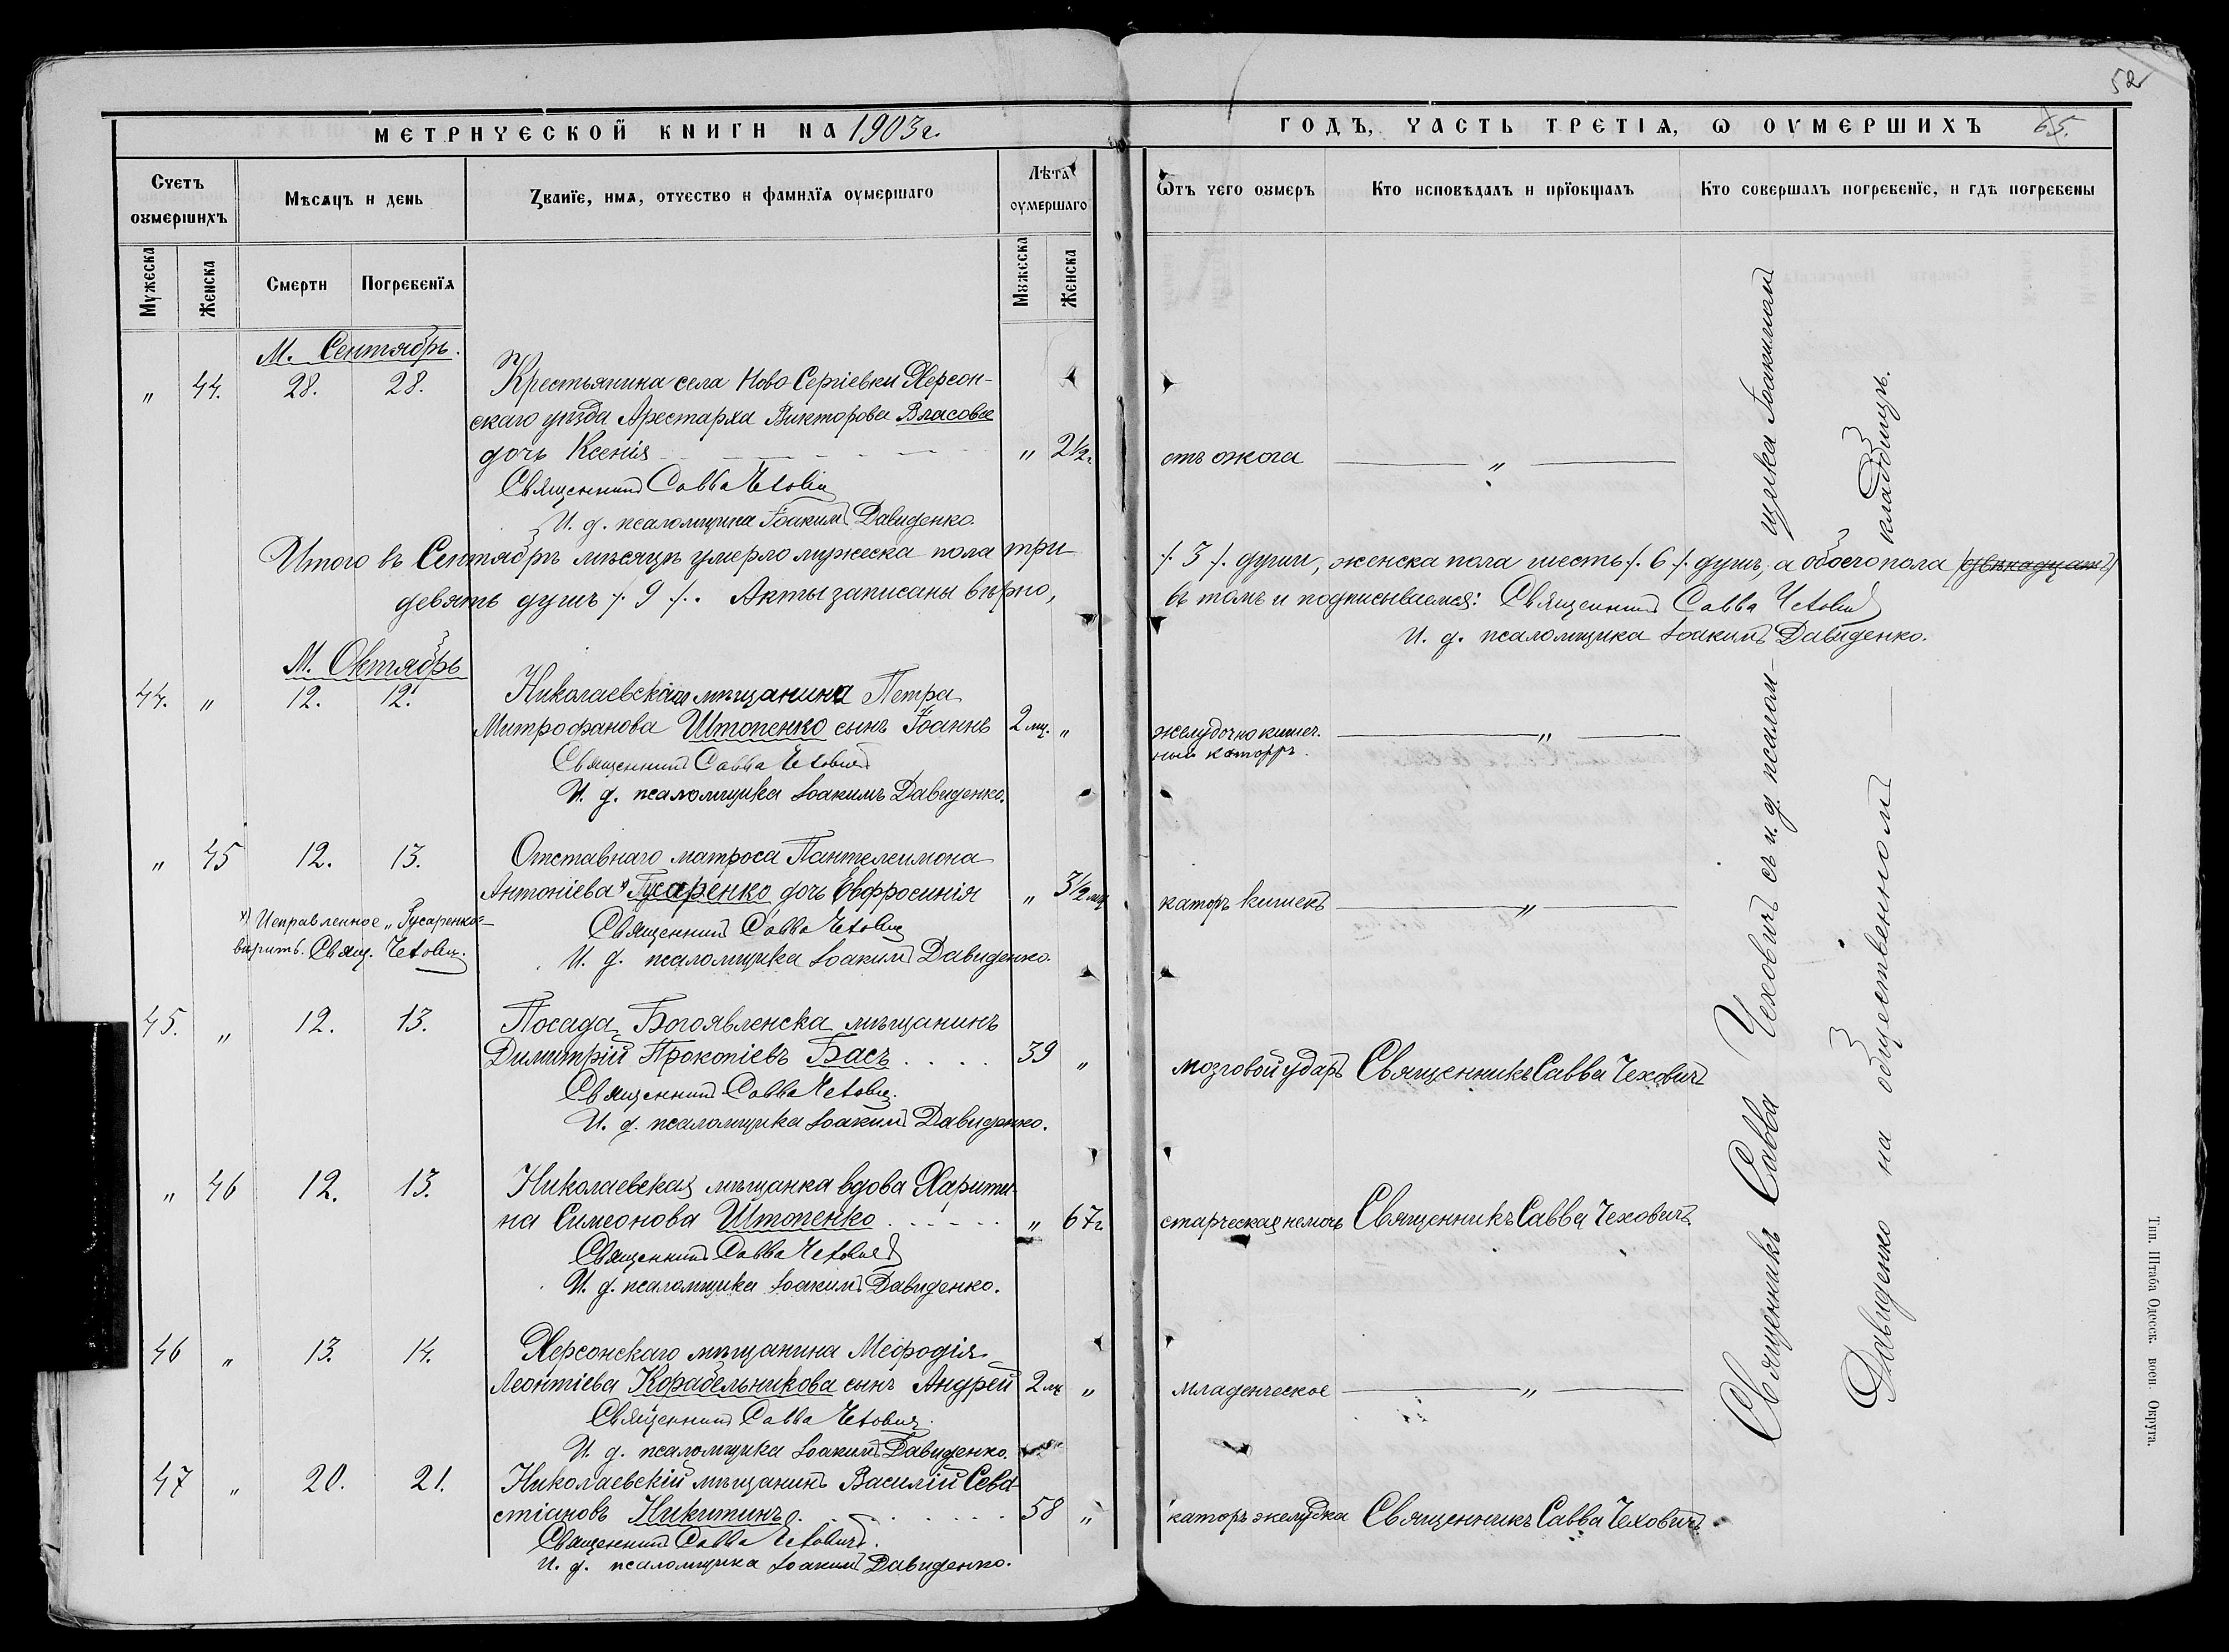 52
МЕТРИЧЕСКОЙ КНИГИ НА 1903 г.
ГОДЪ, ЧАСТЬ ТРЕТІЯ, Ѡ ОУМЕРШИХЪ 65.
Счетъ оумершихъ
Мѣсяцъ и день
Званїе, имя, отчество и фамилїя оумершаго
Лѣта оумершаго
Ѿтъ чего оумеръ
Кто исповѣдалъ и прїобщалъ
Кто совершалъ погребенїе, и гдѣ погребены
Мужеска
Женска
Смерти
Погребенїя
Мужеска
Женска
М. Сентябрь.
" 44. 28. 28. Крестьянина села Ново Сергіевки Херсон-
скаго уѣзда Арестарха Викторова Власова
дочь Ксенія " 2½ г. отъ ожога "
Священникъ Савва Чеховичъ
И. д. псаломщика Іоакимъ Давиденко.
Итого въ Сентябрѣ мѣсяцѣ умерло мужеска пола три /. 3 /. души, женска пола шесть /. 6 /. душъ, а обоего пола (двѣнадцать)
девять душъ /. 9 /. Акты записаны вѣрно, въ томъ и подписываемся: Священникъ Савва Чеховичъ
И. д. псаломщика Іоакимъ Давиденко.
М. Октябрь
44. " 12. 12. Николаевскаго мѣщанина Петра
Митрофанова Штопенко сынъ Іоаннъ 2 мц. " желудочно кишеч.
ный каторръ. "
Священникъ Савва Чеховичъ
И. д. псаломщика Іоакимъ Давиденко.
" 45 12. 13. Отставнаго матроса Пантелеимона
Антоніева *) Гусаренко дочь Евфросинія " 3½ мц каторъ кишекъ "
*) Исправленное "Гусаренко"
вѣрить. Свящ. Чеховичъ.
Священникъ Савва Чеховичъ
И. д. псаломщика Іоакимъ Давиденко.
45. " 12. 13. Посада Богоявленска мѣщанинъ
Димитрій Прокопіевъ Басъ 39 " мозговой ударъ Священникъ Савва Чеховичъ
Священникъ Савва Чеховичъ
И. д. псаломщика Іоакимъ Давиденко.
" 46 12. 13. Николаевская мѣщанка вдова Харити-
на Симеонова Штопенко " 67 г старческая немочь Священникъ Савва Чеховичъ
Священникъ Савва Чеховичъ
И. д. псаломщика Іоакимъ Давиденко.
46 " 13. 14. Херсонскаго мѣщанина Мефодія
Леонтіева Корабельникова сынъ Андрей 2 мц " младенческое "
Священникъ Савва Чеховичъ
И. д. псаломщика Іоакимъ Давиденко.
47 " 20. 21. Николаевскій мѣщанинъ Василій Сева-
стіановъ Никитинъ 58 " каторъ желудка Священникъ Савва Чеховичъ
Священникъ Савва Чеховичъ.
И. д. псаломщика Іоакимъ Давиденко.
Священникъ Савва Чеховичъ съ и. д. псалом-
щика Іоакимомъ
Давиденко на общественномъ
кладбищѣ.
Тип. Штаба Одесск. воен. Округа.